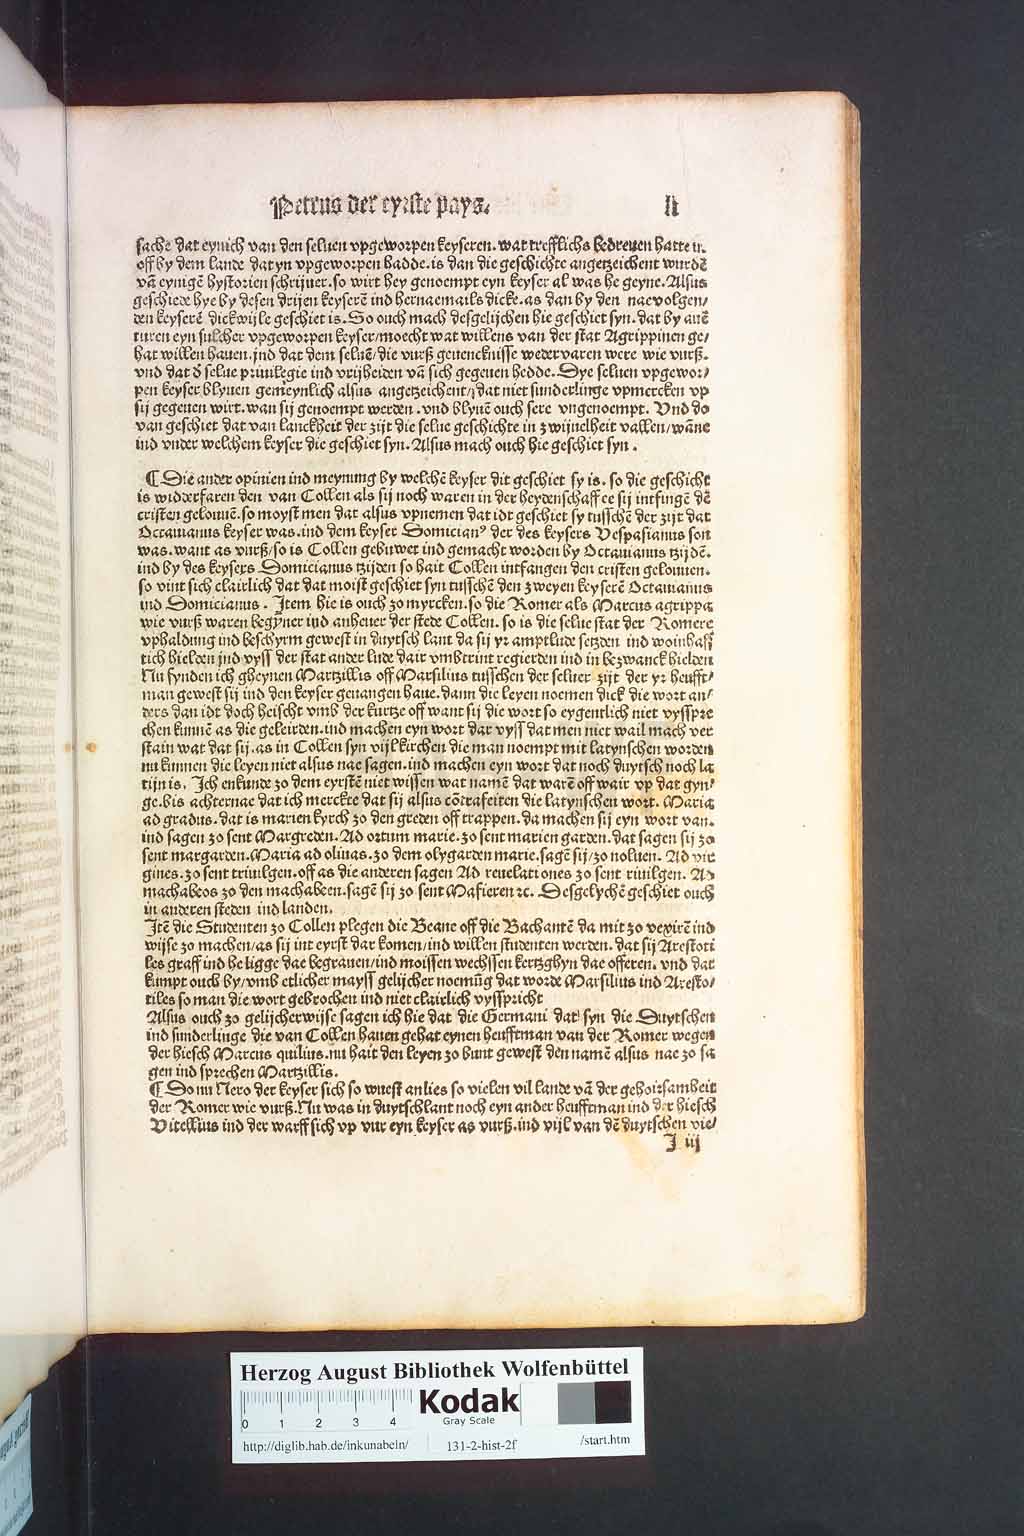 Petrus der eyrste pays. li
sache dat eynich van den seluen vpgeworpen keyseren. wat trefflichs bedreuen hatte in
off by dem lande dat yn vpgeworpen hadde. is dan die geschichte angetzeichent wurdē
vā eynigē hystorien schrijuer. so wirt hey genoempt eyn keyser al was he geyne. Alsus
geschiede hye by desen drijen keyserē ind hernaemails dicke. as dan by den naevolgen/
den keyserē dickwijle geschiet is. So ouch mach desgelijchen hie geschiet syn. dat by auē
turen eyn sulcher vpgeworpen keyser/moecht wat willens van der stat Agrippinen ge/
hat willen hauen. jnd dat dem seluē/die vurß geuencknisse wedervaren were wie vurß.
vnd dat d' selue priuilegie ind vrijheiden vā sich gegeuen hedde. Dye seluen vpgewor/
pen keyser blyuen gemeynlich alsus angetzeichent/dat niet sunderlinge vpmercken vp
sij gegeuen wirt. wan sij genoempt werden. vnd blyuē ouch sere vngenoempt. Vnd do
van geschiet dat van lanckheit der zijt die selue geschichte in zwijuelheit vallen/wāne
ind vnder welchem keyser die geschiet syn. Alsus mach ouch hie geschiet syn.
¶ Die ander opinien ind meynung by welchē keyser dit geschiet sy is. so die geschicht
is widderfaren den van Collen als sij noch waren in der heydenschaff ee sij intfingē dē
cristen gelouuē. so moyst men dat alsus vpnemen dat idt geschiet sy tusschē der zijt dat
Octauianus keyser was. ind dem keyser Domicianꝰ der des keysers Vespasianus son
was. want as vurß/so is Collen gebuwet ind gemacht worden by Octauianus tzijdē.
ind by des keysers Domicianus tzijden so hait Collen intfangen den cristen gelouuen.
so vint sich clairlich dat dat moist geschiet syn tusschē den zweyen keyserē Octauianus
ind Domicianus. Item hie is ouch zo myrcken. so die Romer als Marcus agrippa
wie vurß waren begyner ind anheuer der stede Collen. so is die selue stat der Romere
vphaldung ind beschyrm gewest in duytsch lant da sij yr amptlude setzden ind woinhaff
tich hielden jnd vyss der stat ander lude dair vmbtrint regierden ind in bezwanck hielden
Nu fynden ich gheynen Martzillis off Marsilius tusschen der seluer zijt der yr heufft/
man gewest sij ind den keyser geuangen haue. dann die leyen noemen dick die wort an/
ders dan idt doch heischt vmb der kurtze off want sij die wort so eygentlich niet vysspre
chen kunnē as die geleirden. ind machen eyn wort dar vyss dat men niet wail mach ver
stain wat dat sij. as in Collen syn vijl kirchen die man noempt mit latynschen worden
nu kunnen die leyen niet alsus nae sagen. ind machen eyn wort dat noch duytsch noch la
tijn is. Ich enkunde zo dem eyrstē niet wissen wat namē dat warē off wair vp dat gyn/
ge. bis achternae dat ich merckte dat sij alsus cōtrafeiten die latynschen wort. Maria
ad gradus. dat is marien kyrch zo den greden off trappen. da machen sij eyn wort van.
ind sagen zo sent Margreden. Ad ortum marie. zo sent marien garden. dat sagen sij zo
sent margarden. Maria ad oliuas. zo dem olygarden marie. sagē sij/zo noluen. Ad vir
gines. zo sent triuilgen. off as die anderen sagen Ad reuelationes zo sent riuilgen. Ad
machabeos zo den machabeen. sagē sij zo sent Mafieren ꝛc. Desgelychē geschiet ouch
in anderen steden ind landen.
Itē die Studenten zo Collen plegen die Beane off die Bachantē da mit zo vexirē ind
wijse zo machen/as sij int eyrst dar komen/ind willen studenten werden. dat sij Arestoti
les graff ind he ligge dae begrauen/ind moissen wechssen kertzghyn dae offeren. vnd dat
kumpt ouch by/vmb etlicher mayss gelijcher noemūg dat worde Marsilius ind Aresto/
tiles so man die wort gebrochen ind niet clairlich vyssspricht
Alsus ouch zo gelijcherwijse sagen ich hie dat die Germani dat syn die Duytschen
ind sunderlinge die van Collen hauen gehat eynen heufftman van der Romer wegen
der hiesch Marcus quilius. nu hait den leyen zo bunt gewest den namē alsus nae zo sa
gen ind sprechen Martzillis.
¶ Do nu Nero der keyser sich so wuest anlies so vielen vil lande vā der gehoirsamheit
der Romer wie vurß. Nu was in duytschlant noch eyn ander heufftman ind der hiesch
Vitellius ind der warff sich vp vur eyn keyser as vurß. ind vijl van dē duytschen vie/
I iij
Herzog August Bibliothek Wolfenbüttel
0 1 2 3 4
Kodak
Gray Scale
http://diglib.hab.de/inkunabeln/ 131-2-hist-2f /start.htm